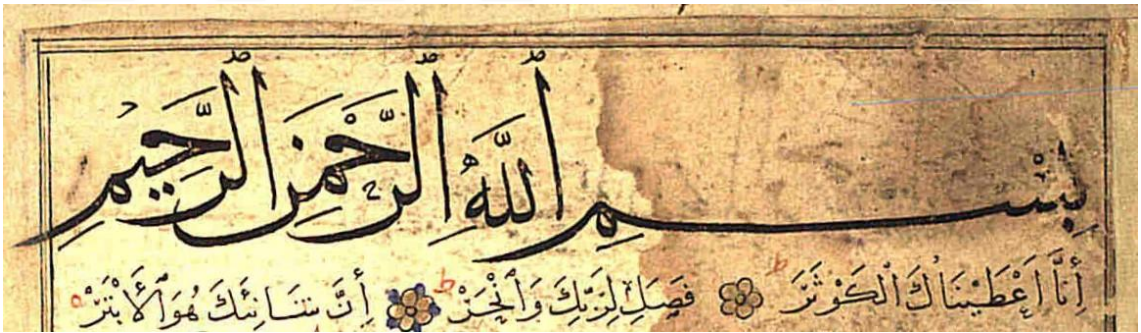 بِسْمِ اللّٰهِ الرَّحْمٰنِ الرَّحِيمِ
إِنَّا أَعْطَيْنَاكَ الْكَوْثَرَ ط فَصَلِّ لِرَبِّكَ وَانْحَرْ ط إِنَّ شَانِئَكَ هُوَ الْأَبْتَرُ